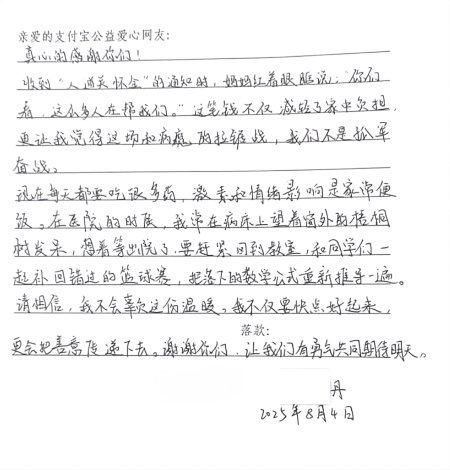 亲爱的支付宝公益爱心网友:
真心的感谢你们!
收到“人道关怀金”的通知时,妈妈红着眼眶说:“你们
看,这么多人在帮我们。”这笔钱不仅减轻了家中负担,
更让我觉得这场和病魔的拉锯战,我们不是孤军
奋战。
现在每天都要吃很多药,激素和情绪影响是家常便
饭。在医院的时候,我常在病床上望着窗外的梧桐
树发呆,想着等出院了,要赶紧回到教室,和同学们一
起补回错过的篮球赛,把落下的数学公式重新推导一遍。
请相信,我不会辜负这份温暖。我不仅要快点好起来,
落款:
更会把善意传递下去。谢谢你们,让我们有勇气共同期待明天。
丹
2025年8月4日